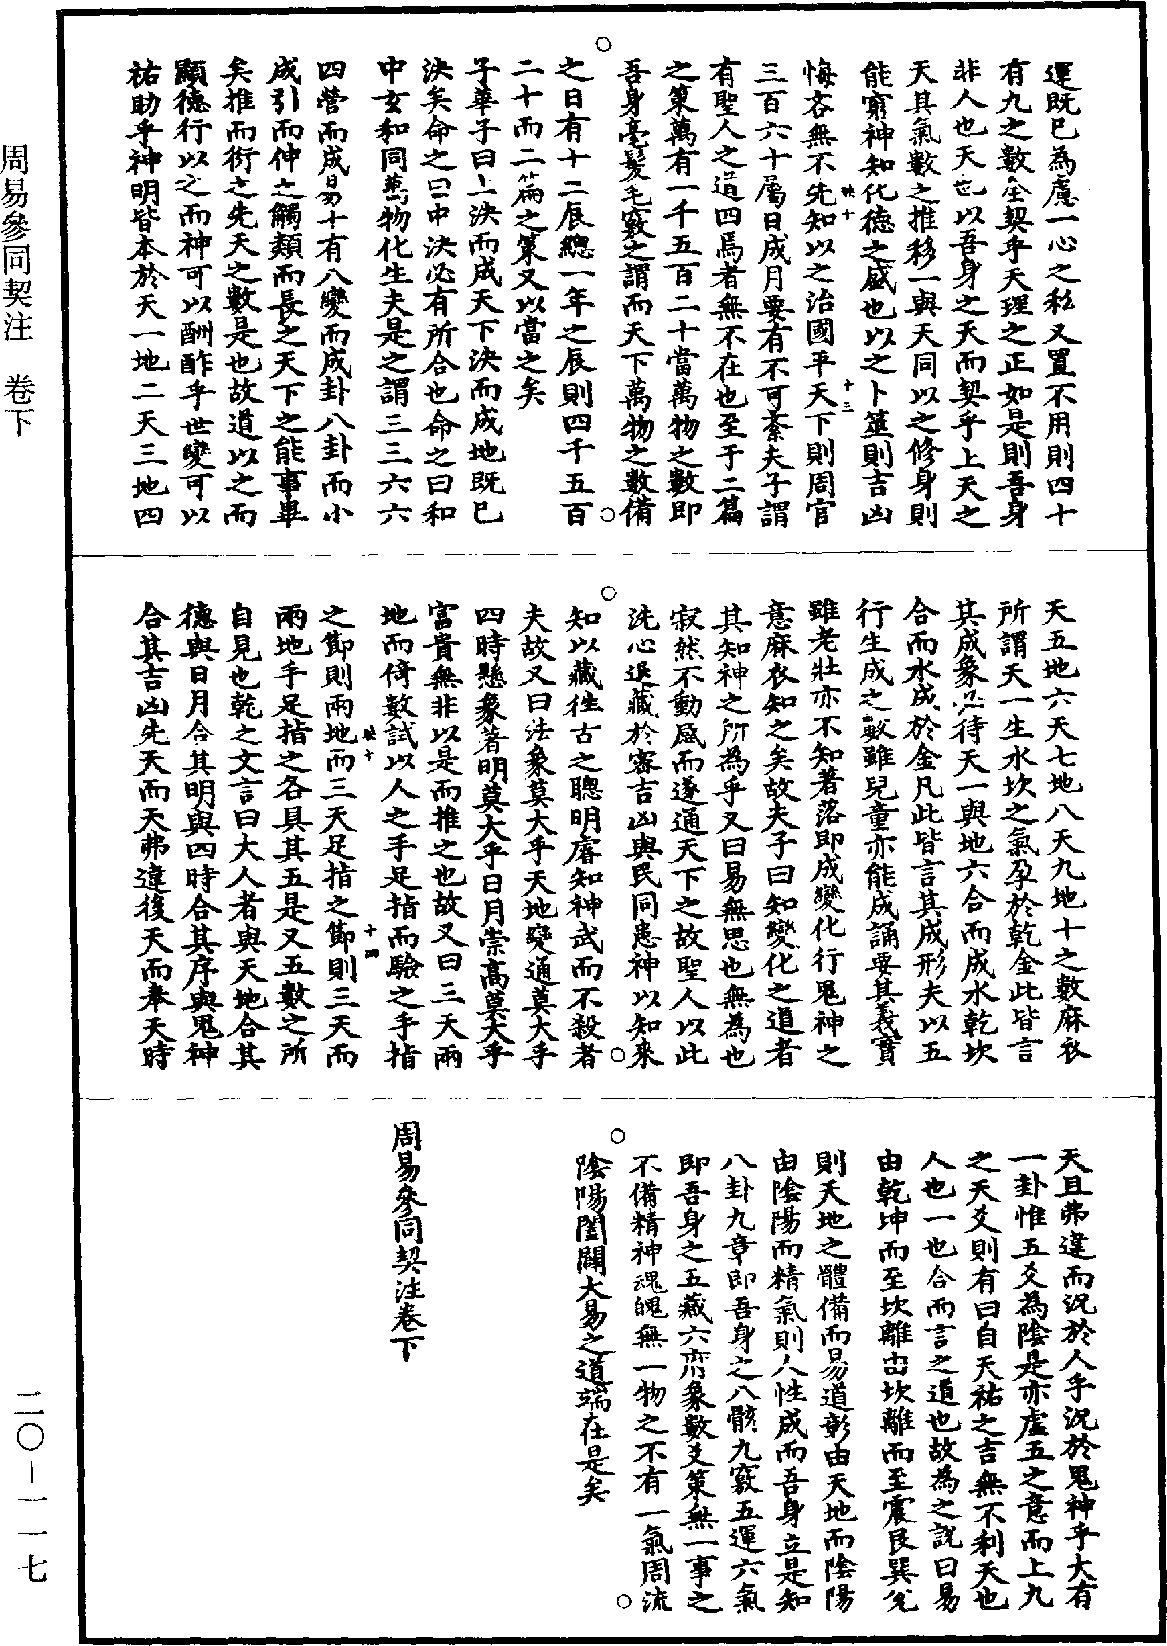 周易參同契注　卷下
運既已為慮一心之私又置不用則四十
有九之數全契乎天理之正如是則吾身
非人也天也以吾身之天而契乎上天之
天其氣數之推移一與天同以之修身則
能窮神知化德之盛也以之卜筮則吉凶
悔吝無不先知以之治國平天下則周官
三百六十屬日成月要有不可紊夫子謂
有聖人之道四焉者無不在也至于二篇
之策萬有一千五百二十當萬物之數即
吾身毫髮毛竅之謂而天下萬物之數備
之日有十二辰總一年之辰則四千五百
二十而二篇之策又以當之矣
子華子曰上決而成天下決而成地既已
決矣命之曰中決必有所合也命之曰和
中玄和同萬物化生夫是之謂三三六六
四營而成易十有八變而成卦八卦而小
成引而伸之觸類而長之天下之能事畢
矣推而衍之先天之數是也故道以之而
顯德行以之而神可以酬酢乎世變可以
祐助乎神明皆本於天一地二天三地四
天五地六天七地八天九地十之數麻衣
所謂天一生水坎之氣孕於乾金此皆言
其成象必待天一與地六合而成水乾坎
合而水成於金凡此皆言其成形夫以五
行生成之數雖兒童亦能成誦要其義實
雖老壯亦不知著落即成變化行鬼神之
意麻衣知之矣故夫子曰知變化之道者
其知神之所為乎又曰易無思也無為也
寂然不動感而遂通天下之故聖人以此
洗心退藏於密吉凶與民同患神以知來
知以藏往古之聰明睿知神武而不殺者
夫故又曰法象莫大乎天地變通莫大乎
四時懸象著明莫大乎日月崇高莫大乎
富貴無非以是而推之也故又曰三天兩
地而倚數試以人之手足指而驗之手指
之節則兩地而三天足指之節則三天而
兩地手足指之各具其五是又五數之所
自見也乾之文言曰大人者與天地合其
德與日月合其明與四時合其序與鬼神
合其吉凶先天而天弗違後天而奉天時
天且弗違而況於人乎況於鬼神乎大有
一卦惟五爻為陰是亦虛五之意而上九
之天爻則有曰自天祐之吉無不利天也
人也一也合而言之道也故為之說曰易
由乾坤而至坎離由坎離而至震艮巽兌
則天地之體備而易道彰由天地而陰陽
由陰陽而精氣則人性成而吾身立是知
八卦九章即吾身之八骸九竅五運六氣
即吾身之五藏六府象數爻策無一事之
不備精神魂魄無一物之不有一氣周流
陰陽闔闢大易之道端在是矣
周易參同契注卷下
二〇－一一七